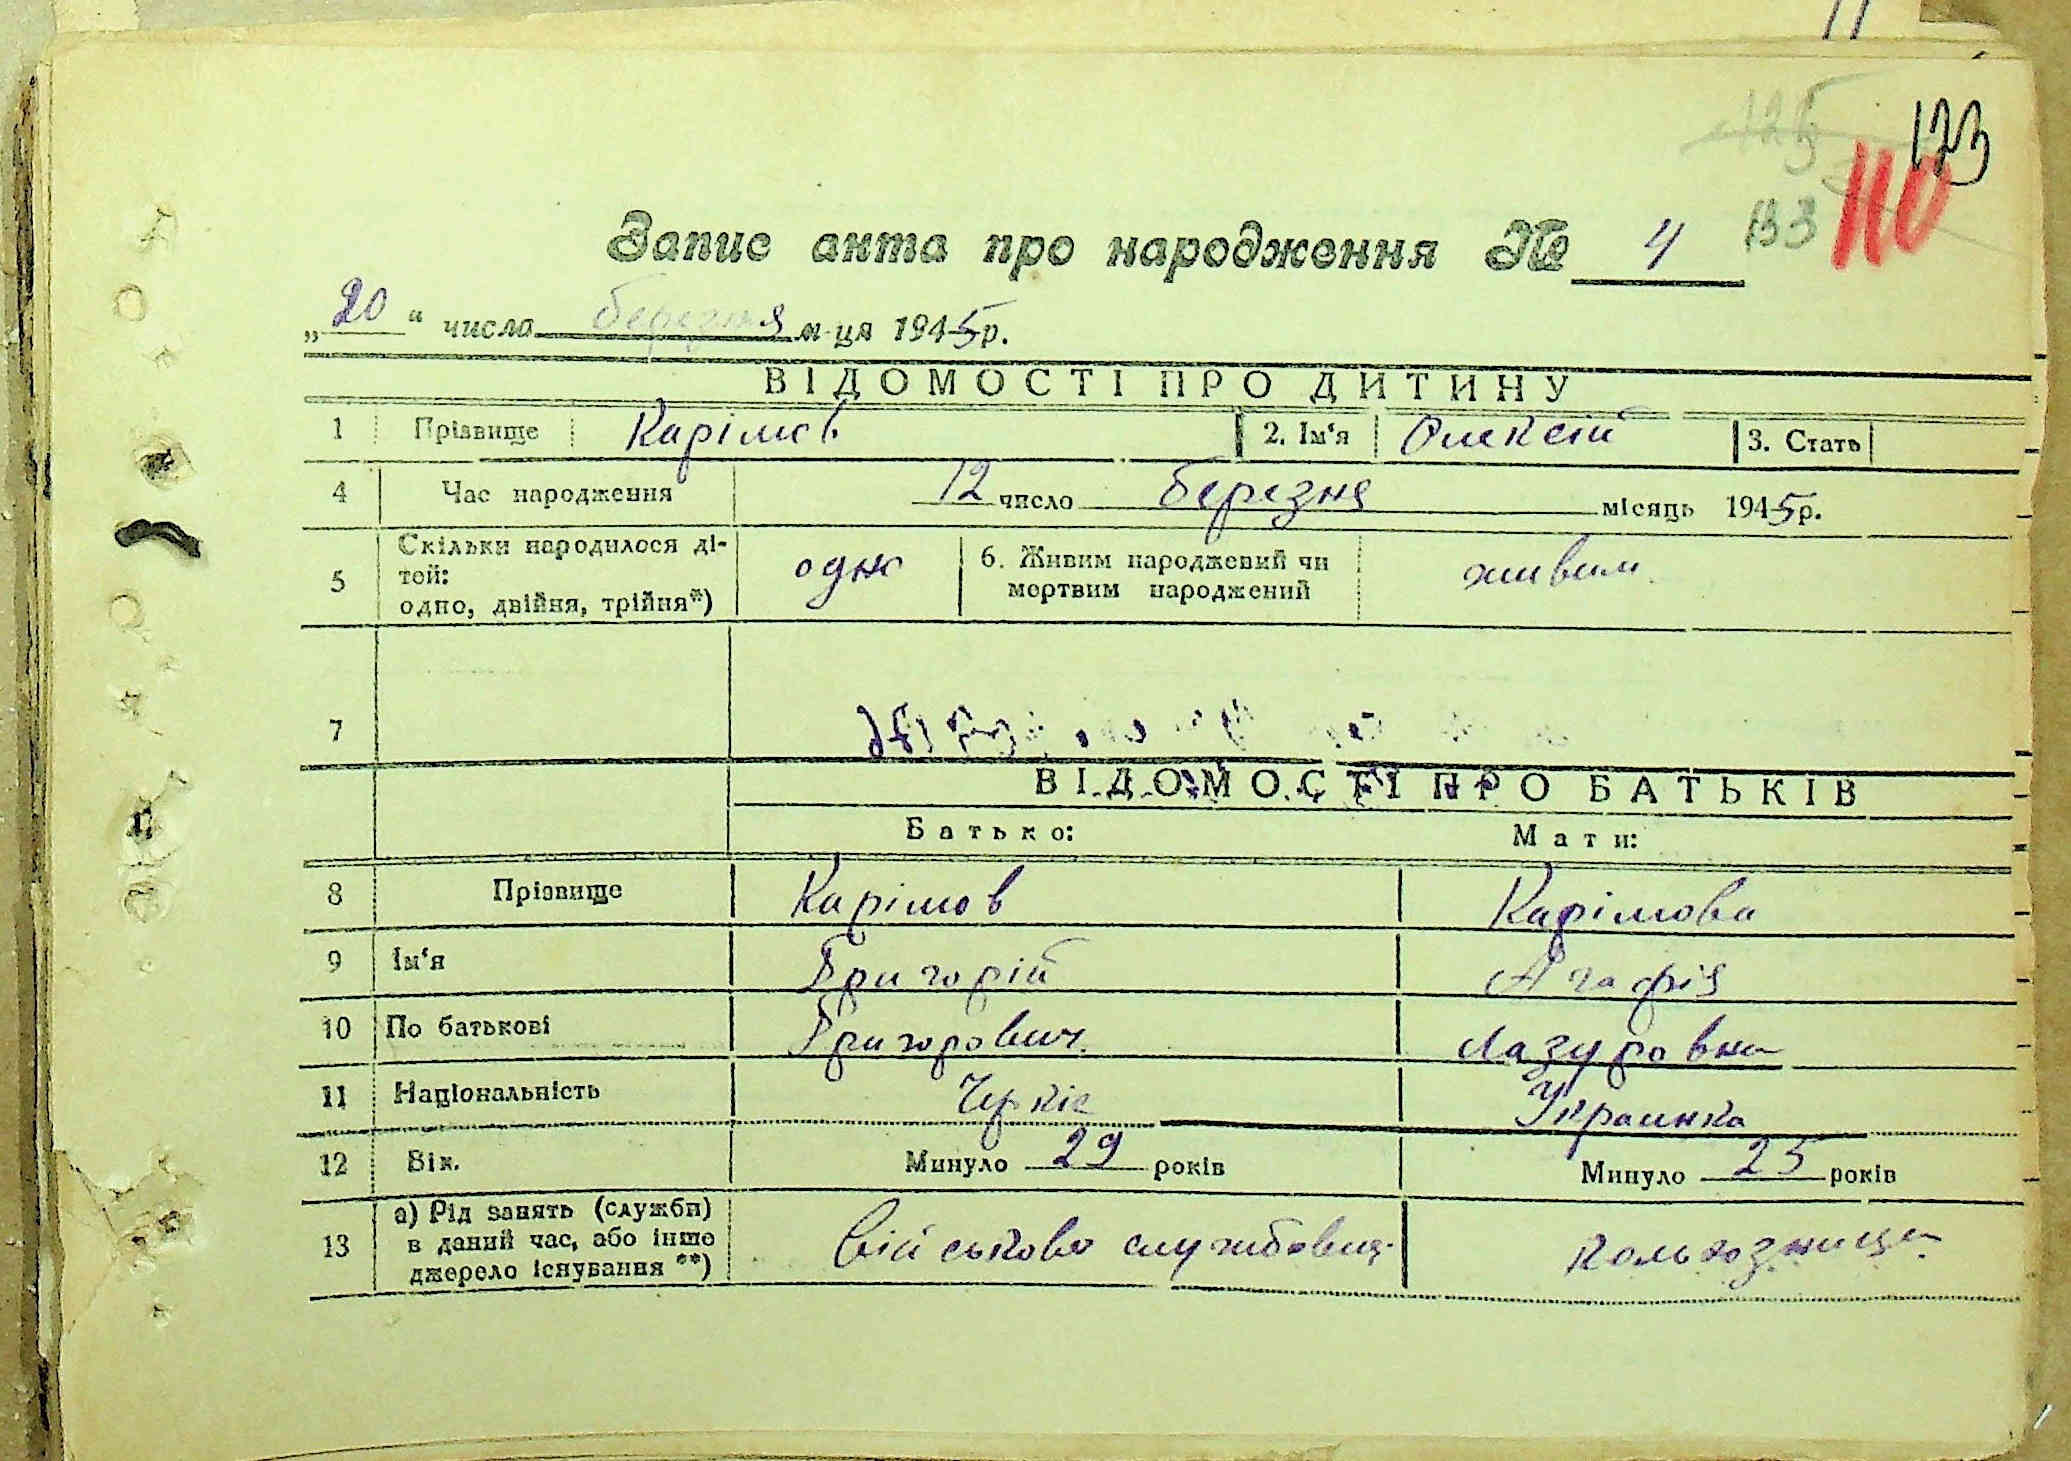 123
125
133
110
Запис акта про народження № 4
„20“ числа березня м-ця 1945р.
ВІДОМОСТІ ПРО ДИТИНУ
1 Прізвище Карімов 2. Ім‘я Олексій 3. Стать
4 Час народження 12 число березня місяць 1945р.
5 Скільки народилося ді-
тей:
одно, двійня, трійня*) одно 6. Живим народжений чи
мертвим народжений живим
7
ВІДОМОСТІ ПРО БАТЬКІВ
Батько: Мати:
8 Прізвище Карімов Карімова
9 Ім‘я Григорій Агафія
10 По батькові Григорович Лазуровна
11 Національність Черкіс Украинка
12 Вік. Минуло 29 років Минуло 25 років
13 а) Рід занять (служби)
в даний час, або інше
джерело існування **) військово службовец. колхозница